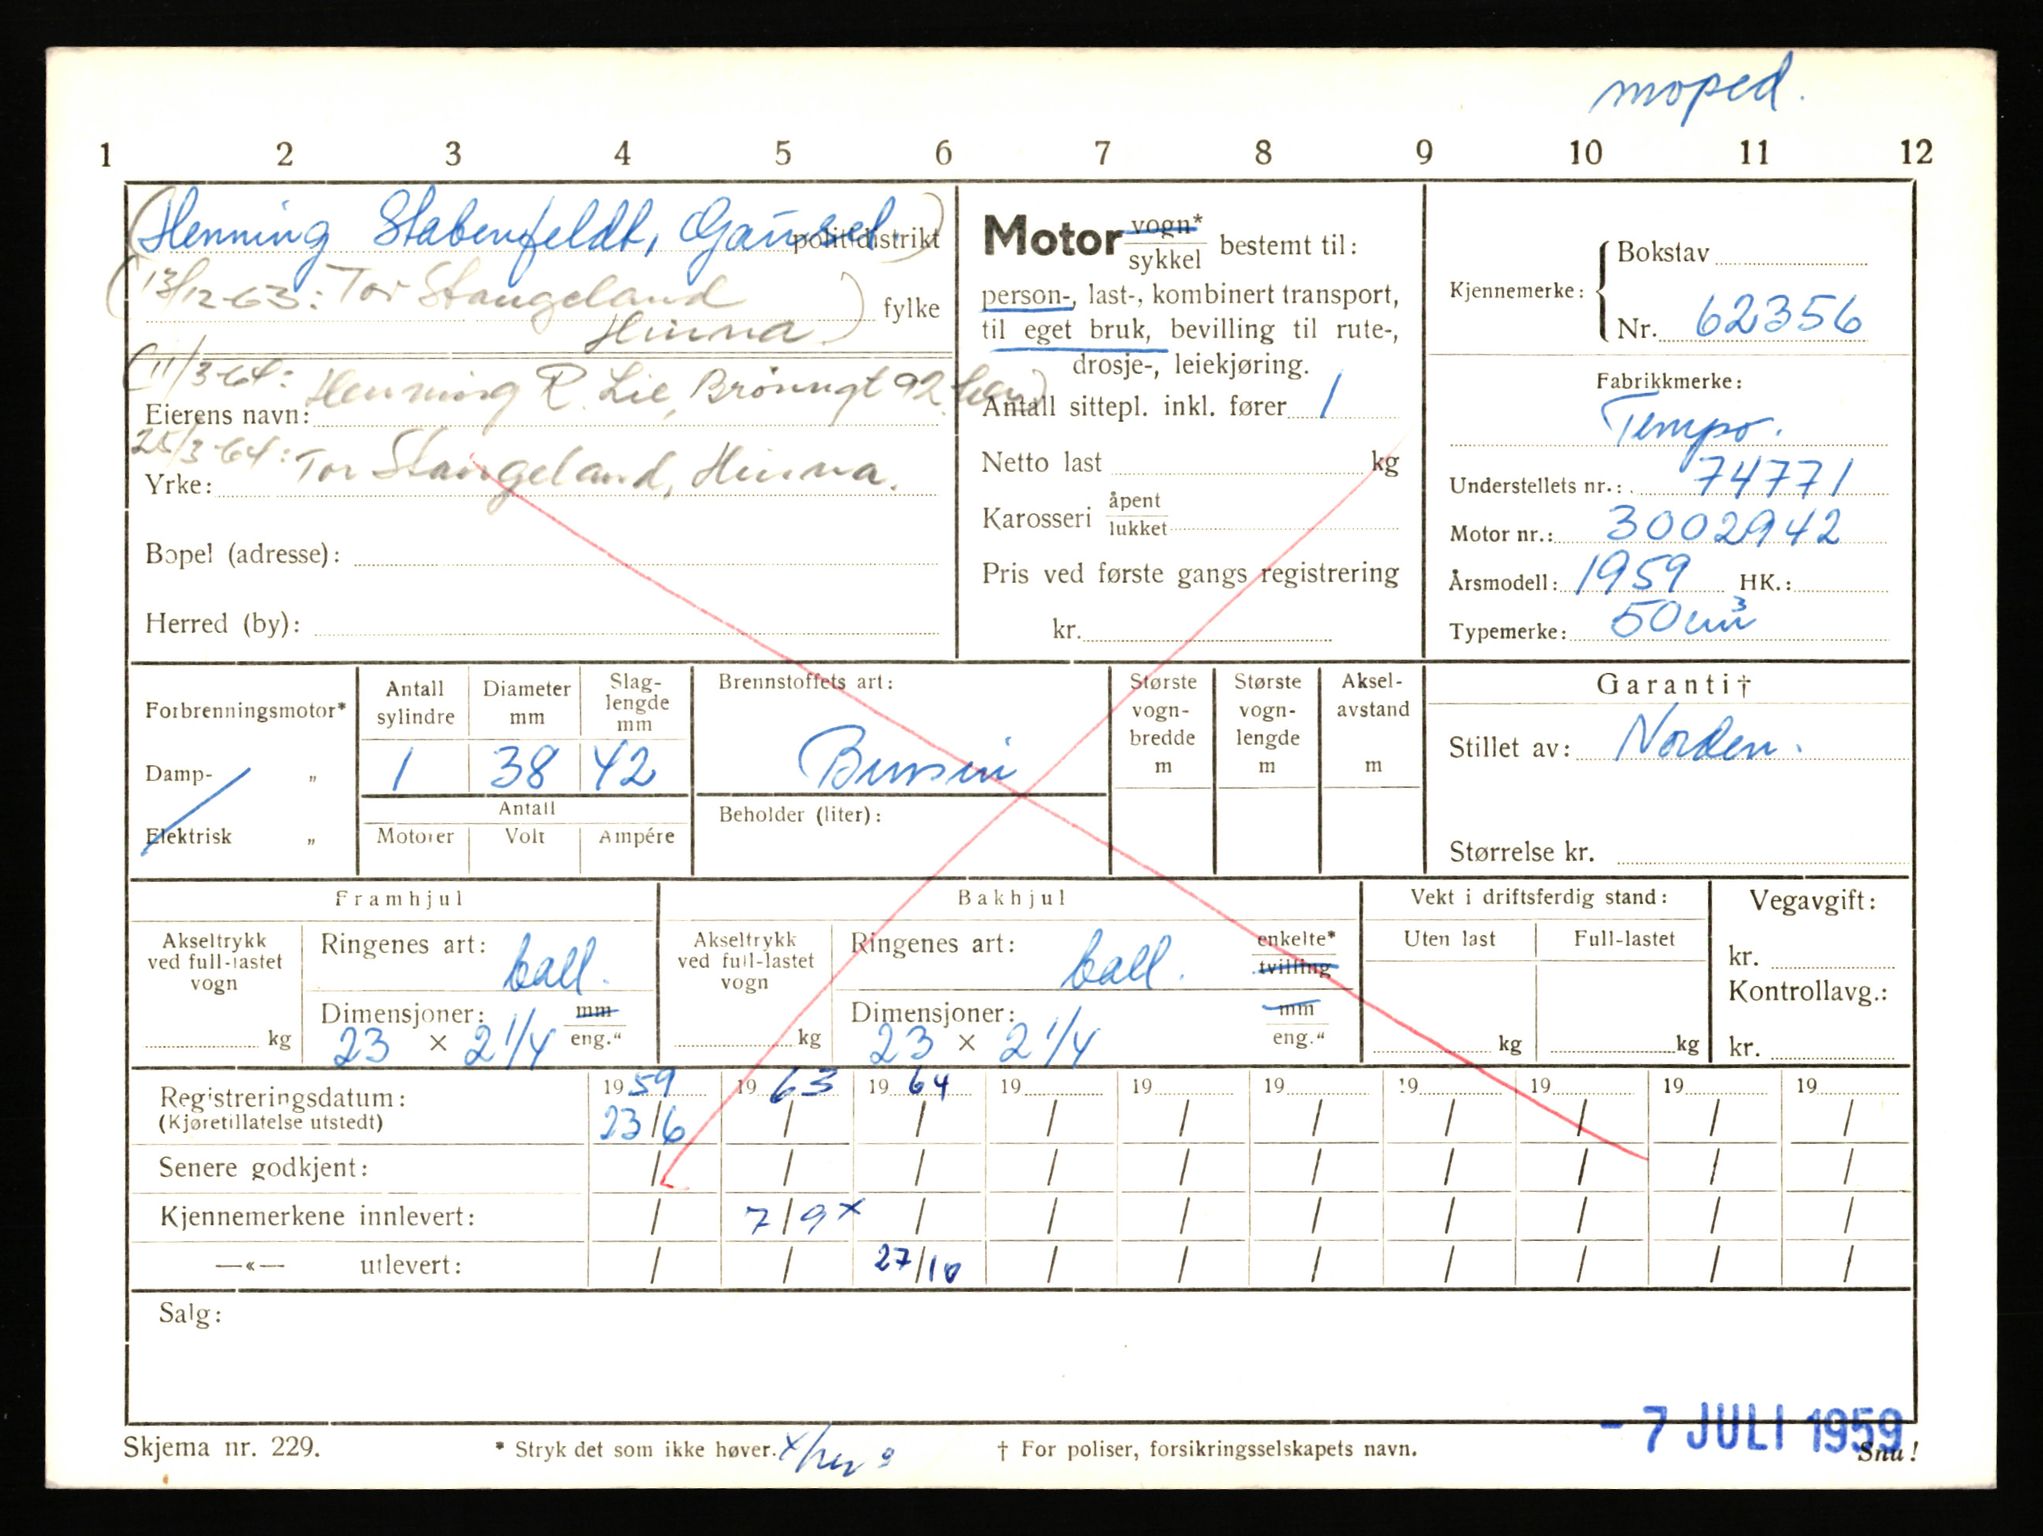 moped.
1 2 3 4 5 6 7 8 9 10 11 12
(Henning Stabenfeldt, Gausel.) politidistrikt
(13/12-63: Tor Stangeland
Hinna.) fylke
(11/3-64: Henning R. Lie, Brönngt 92
Eierens navn:
25/3-64: Tor Stangeland, Hinna.
Yrke:
Bopel (adresse):
Herred (by):
Motor vogn*
sykkel bestemt til:
person-, last-, kombinert transport,
til eget bruk, bevilling til rute-,
drosje-, leiekjøring.
Antall sittepl. inkl. fører 1
Netto last kg
Karosseri åpent
lukket
Pris ved første gangs registrering
kr.
Kjennemerke: Bokstav
Nr. 62356
Fabrikkmerke:
Tempo.
Understellets nr.: 74771
Motor nr.: 3002942
Årsmodell: 1959 HK.:
Typemerke: 50 cm³
Forbrenningsmotor*
Damp- „
Elektrisk „
Antall sylindre
Diameter mm
Slag-lengde mm
1 38 42
Antall
Motorer Volt Ampére
Brennstoffets art:
Bensin
Beholder (liter):
Største vogn-bredde m
Største vogn-lengde m
Aksel-avstand m
Garanti†
Stillet av: Norden.
Størrelse kr.
Framhjul
Akseltrykk ved full-lastet vogn
kg
Ringenes art: ball.
Dimensjoner: mm
23 × 2 1/4 eng."
Bakhjul
Akseltrykk ved full-lastet vogn
kg
Ringenes art: ball. enkelte*
tvilling
Dimensjoner: mm
23 × 2 1/4 eng."
Vekt i driftsferdig stand:
Uten last Full-lastet
kg kg
Vegavgift:
kr.
Kontrollavg.:
kr.
Registreringsdatum: 1959 1963 1964 19 19 19 19 19 19 19
(Kjøretillatelse utstedt) 23/6 / / / / / / / / /
Senere godkjent: / / / / / / / / / /
Kjennemerkene innlevert: / 7/9 x / / / / / / / /
—«— utlevert: / / 27/10 / / / / / / /
Salg:
- 7 JULI 1959
Skjema nr. 229. * Stryk det som ikke høver. † For poliser, forsikringsselskapets navn. Snu!